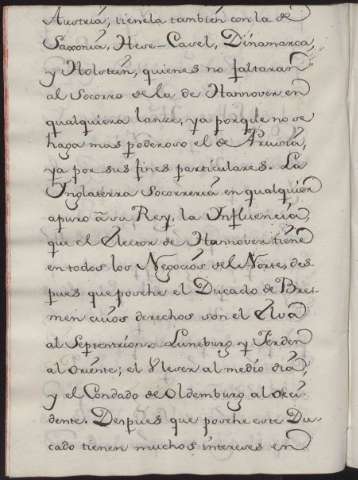 Austriá, tienela tambien con la de
Saxoniá, Hese-Casel, Dinamarca,
y Holstein, quienes no faltarán
al Socorro de la de Hannover en
qualquiera lanze, ya porque no se
haga mas poderoso el de Prusiá,
ya por sus fines particulares. La
Ynglaterra Socorreriá en qualquier
apuro à su Rey, la Ynfluenciá,
que el Elector de Hannover tiene
en todos los Negocios del Norte, des
pues que posehe el Ducado de Bre-
men cuios derechos son el Elva
al Septentrion: Luneburg y Verden
al Oriente; el Weser al medio diá,
y el Condado de Oldemburg al occi
dente. Despues que posehe este Du
cado tienen muchos intereses en